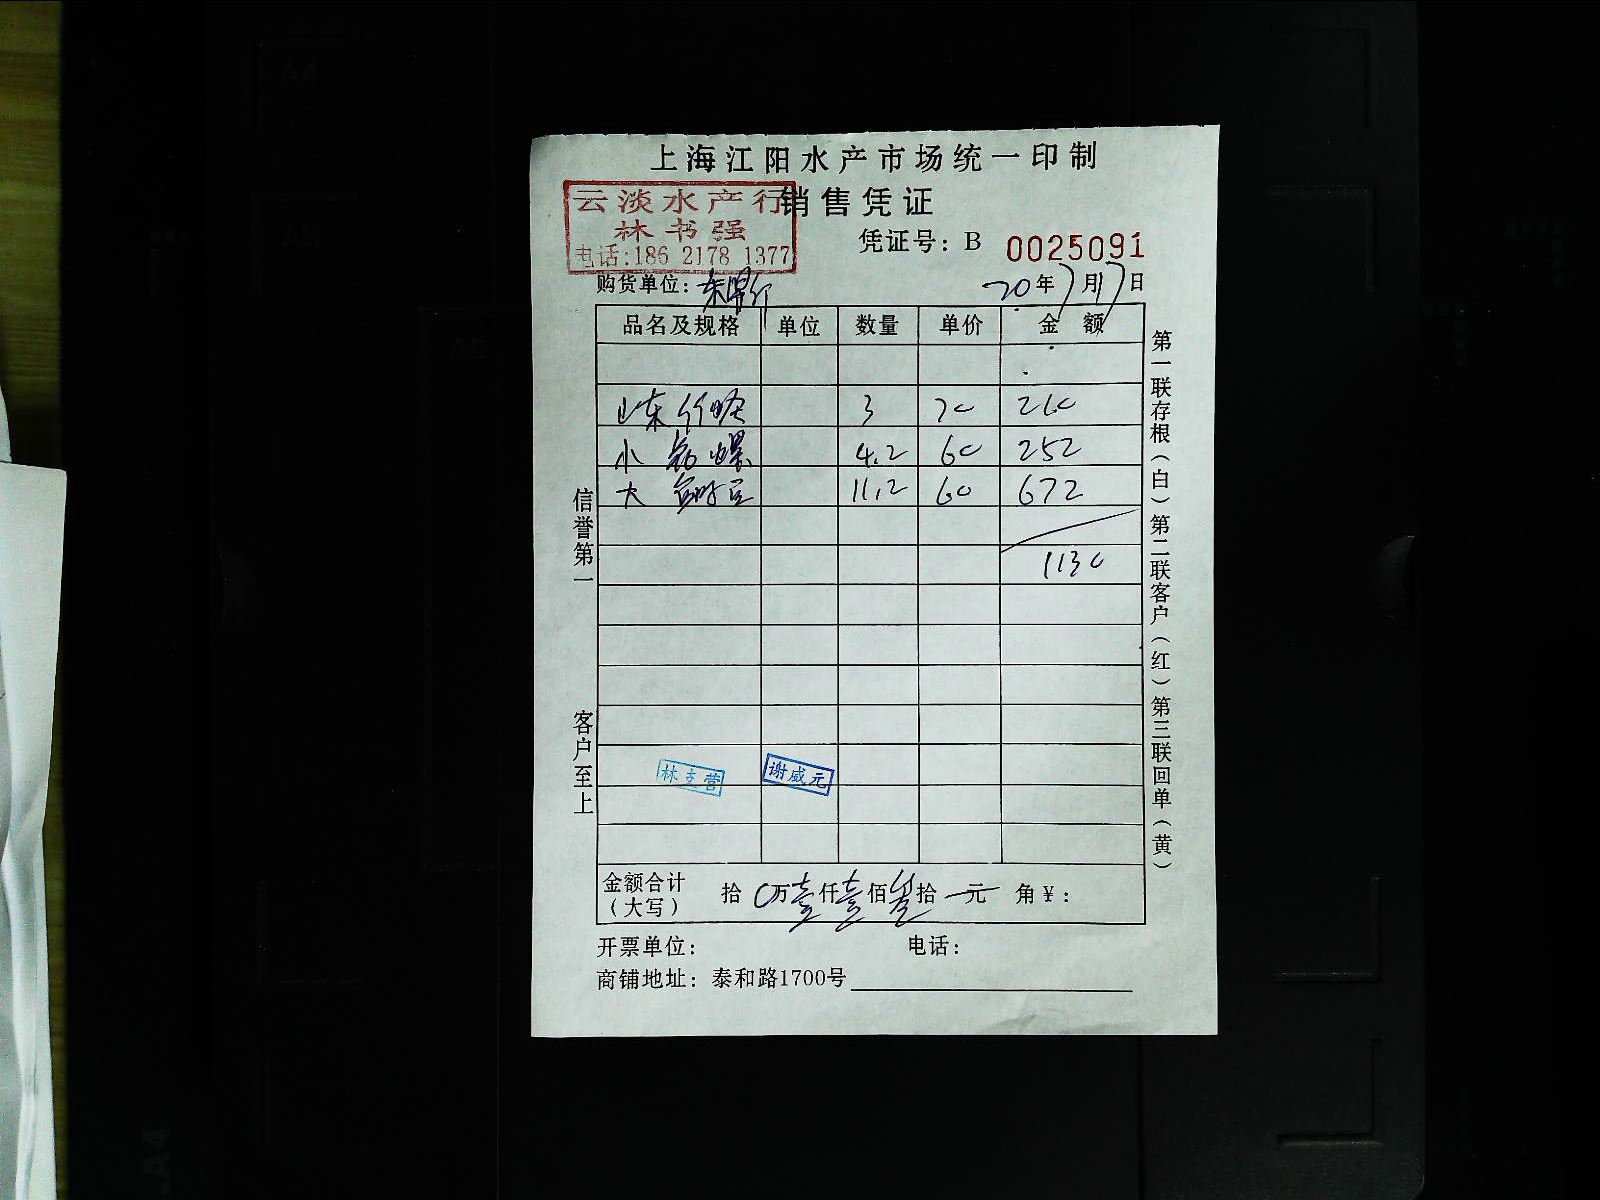 上海江阳水产市场统一印制
销售凭证
云淡水产行
林书强
电话:186 2178 1377
凭证号: B 0025091
购货单位:
20年7月17日
品名及规格 单位 数量 单价 金额
山东竹蛏 3 70 210
小 螺 4.2 60 252
大 11.2 60 672
1130
信誉第一
客户至上
第一联存根(白)第二联客户(红)第三联回单(黄)
林支营
谢威元
金额合计(大写) 拾0万壹仟壹佰叁拾元 角¥:
开票单位: 电话:
商铺地址: 泰和路1700号